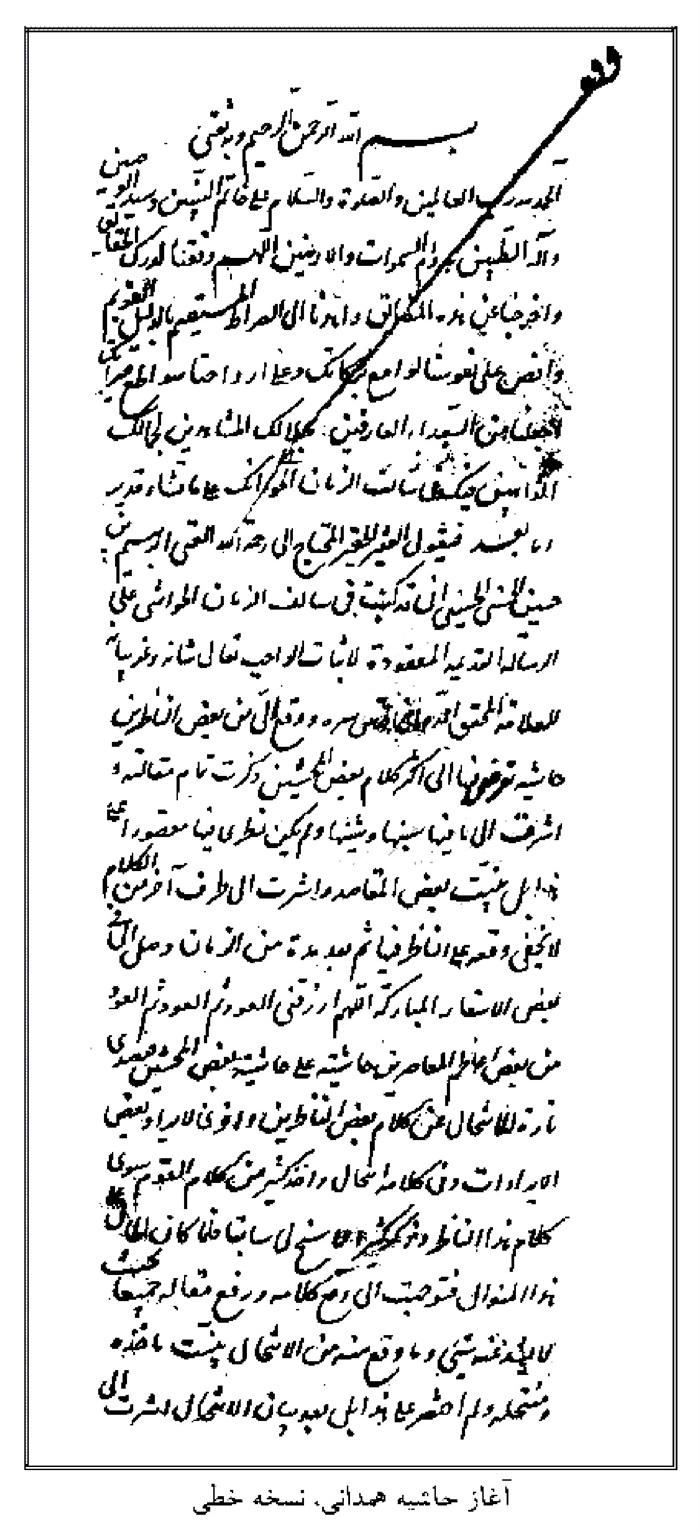 بسم الله الرحمن الرحیم وبه ثقتی
الحمد لله رب العالمین والصلوة والسلام علی خاتم النبیین وسید الوصیین
وآله الطیبین بدوام السموات والارضین اللهم وفقنا لدرک الحقایق
واخرجنا عن هذه المضائق واهدنا الی الصراط المستقیم بالدلیل القویم
وافض علی نفوسنا لوامع برکاتک وعلی ارواحنا سواطع
واجعلنا من السعداء العارفین بجلالک المشاهدین لجمالک
علی ما تشاء قدیر
وبعد فیقول الفقیر الحقیر المحتاج الی رحمة الله الغنی ابرهیم بن
حسین الحسنی الحسینی انی قد کتبت فی سالف الزمان الحواشی علی
الرسالة القدیمة المعقودة لاثبات الواجب تعالی شانه
للعلامة المحقق سره ووقع الی من بعض الناظرین
حاشیه الی اکثر کلام بعض المحشین ذکرت تمام مقالته و
اشرت الی ما فیها سینها وشینها ولم یکن نظری فیها مقصورا علی
هذا بل بینت بعض المقاصد واشرت الی طرف آخر من الکلام
لا یخفی وقعه علی الناظر فیها ثم بعد مدة من الزمان وصل الی فی
بعض الاسفار المبارکة اللهم ارزقنی العود ثم العود ثم العود
من بعض اعاظم المعاصرین حاشیته علی حاشیة بعض المحشین تصدی
تارة للانتحال عن کلام بعض الناظرین واخری لایراد بعض
الایرادات وفی کلامه انتحال واخذ کثیر من کلام القوم سوی
کلام هذا الناظر سنح لی سابقا فلما کان الحال علی
هذا المنوال فتوجهت الی دفع کلامه ورفع مقاله جمیعا بحیث
لا یشذ عنه شیء وما وقع منه من الانتحال بینت ماخذه
ومنتحله ولم اقتصر علی هذا بل بعد بیان الانتحال اشرت الی
آغاز حاشیه همدانی، نسخه خطی